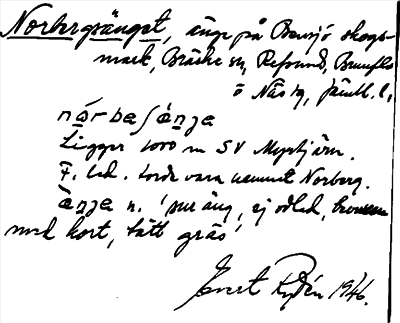 Norbergsänget, änge på Bensjö skogs-
mark, Bräcke sn, Refsund, Brunflo
o Näs tg, Jämtl. l.,
nórbeʃanʒe
Ligger 1000 m SV Myrtjärn.
F. led. torde vara namnet Norberg.
ànʒe n. 'sur äng, ej odlad,
med kort, tätt gräs'
Evert Rydén 1946.